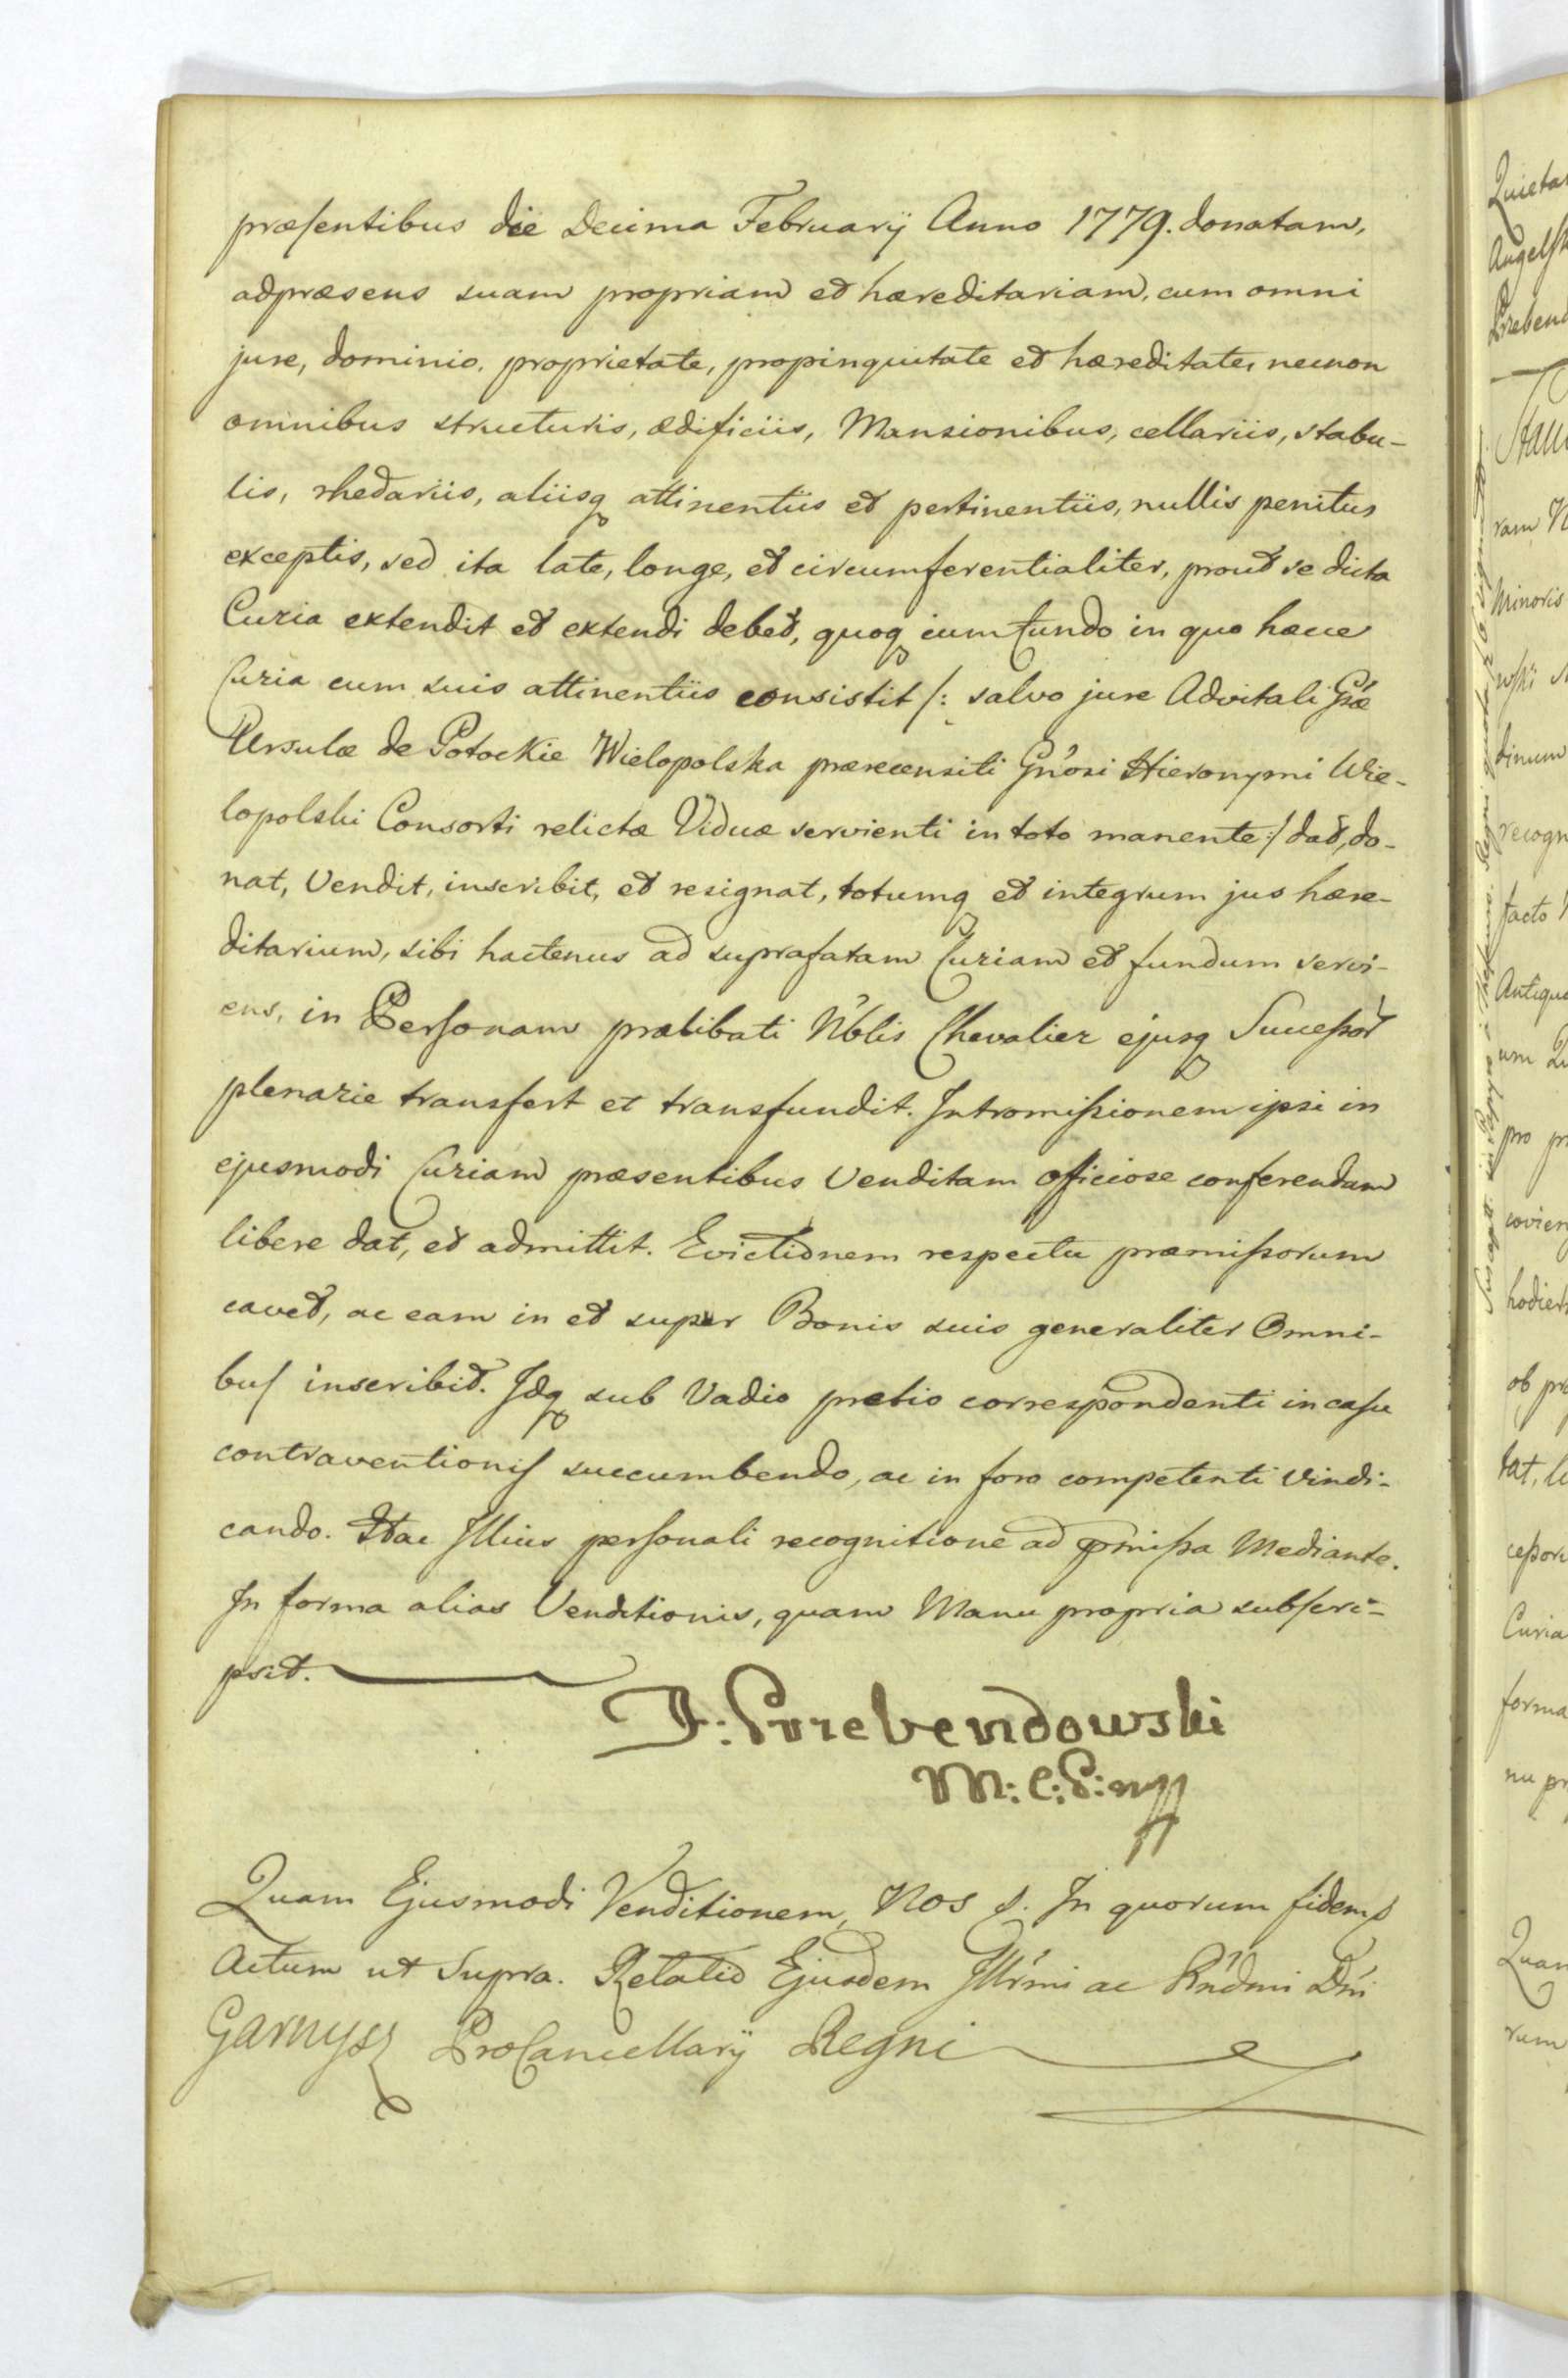 præsentibus die Decima Februarÿ Anno 1779. donatam,
adpræsens suam propriam et hæreditariam, cum omni
jure, dominio, proprietate, propinquitate et hæreditate, necnon
omnibus structuris, ædificiis, Mansionibus, cellariis, stabu-
lis, rhedariis, aliisq attinentiis et pertinentiis, nullis penitus
exceptis, sed ita late, longe, et circumferentialiter, prout se dicta
Curia extendit et extendi debet, quoq cum fundo in quo hæcce
Curia cum suis attinentiis consistit /: salvo jure Advitali Gsæ
Ursulæ de Potockie Wielopolska præcensiti Gnosi Hieronymi Wie-
lopolski Consorti relictæ Viduæ servienti in toto manente :/ dat, do-
nat, Vendit, inscribit, et resignat, totumq et integrum jus hære-
ditarium, sibi hactenus ad suprafatam Curiam et fundum servi-
ens, in Personam prælibati Nblis Chevalier ejusq Successor
plenarie transfert et transfundit. Intromissionem ipsi in
ejusmodi Curiam præsentibus Venditam officiose conferendam
libere dat, et admittit. Evictionem respectu præmissorum
cavet, ac eam in et super Bonis suis generaliter Omni-
bus inscribit. Idq sub Vadio pretio correspondenti in casu
contraventionis succumbendo, ac in foro competenti vindi-
cando. Hac Illius personali recognitione ad pmissa Mediante.
In forma alias Venditionis, quam Manu propria subscri-
psit.
I: Przebendowski
M: C: P: mpp
Quam Ejusmodi Venditionem, Nos p. In quorum fidem p
Actum ut Supra. Relatio Ejusdem Illrmi ac Rndmi Dni
Garnysz ProCancellarÿ Regni
Quieta
Angelsk
Przebend
ram N
Minoris
wski
binum
recogn
facto
Antiqu
um
pro pr
hodier
ob pr
tat, li
cessor
Curia
forma
nu pr
Quam
rum